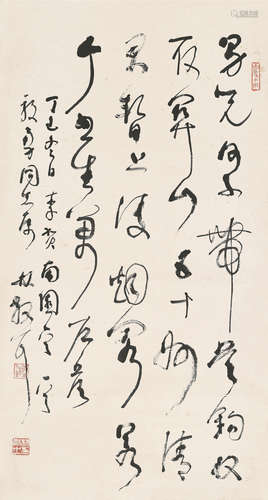 男儿何不带吴钩收
取关山五十州请
君暂上凌烟阁若
个书生万户侯
丁巳冬日李贺南园之一首
毅勇同志属 林散耳